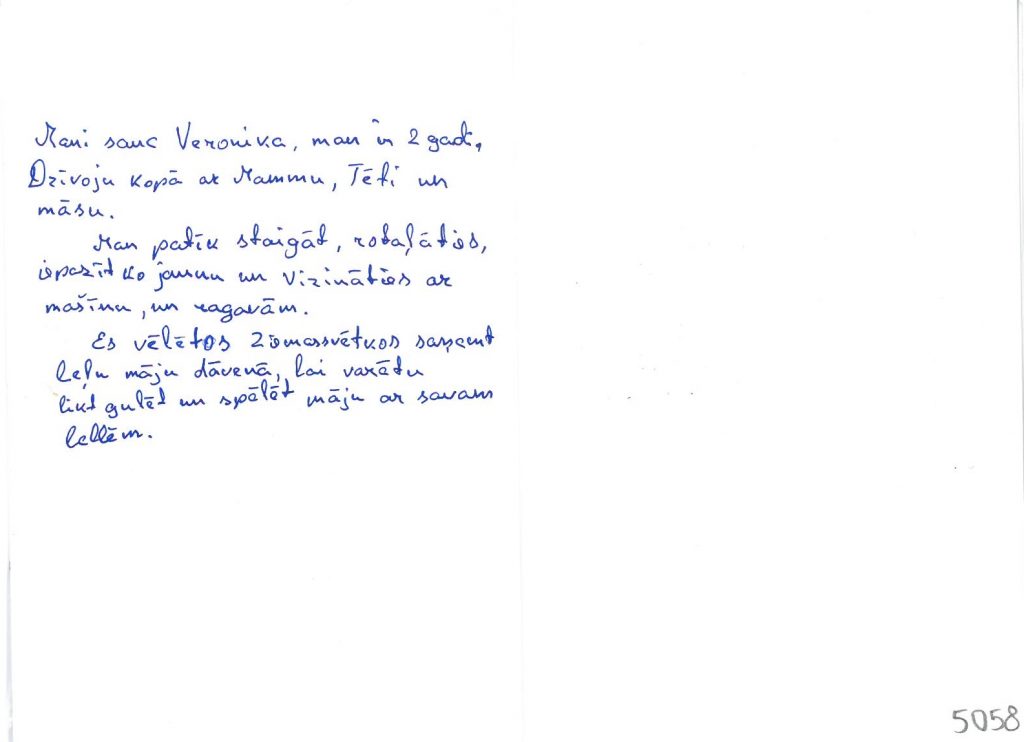 Mani sauc Veronika, man ir 2 gadi.
Dzīvoju kopā ar Mammu, Tēti un
māsu.
Man patīk staigāt, rotaļāties,
iepazīt ko jaunu un vizināties ar
mašīnu, un ragavām.
Es vēlētos Ziemassvētkos saņemt
leļu māju dāvenā, lai varētu
likt gulēt un spēlēt māju ar savam
lellēm.
5058